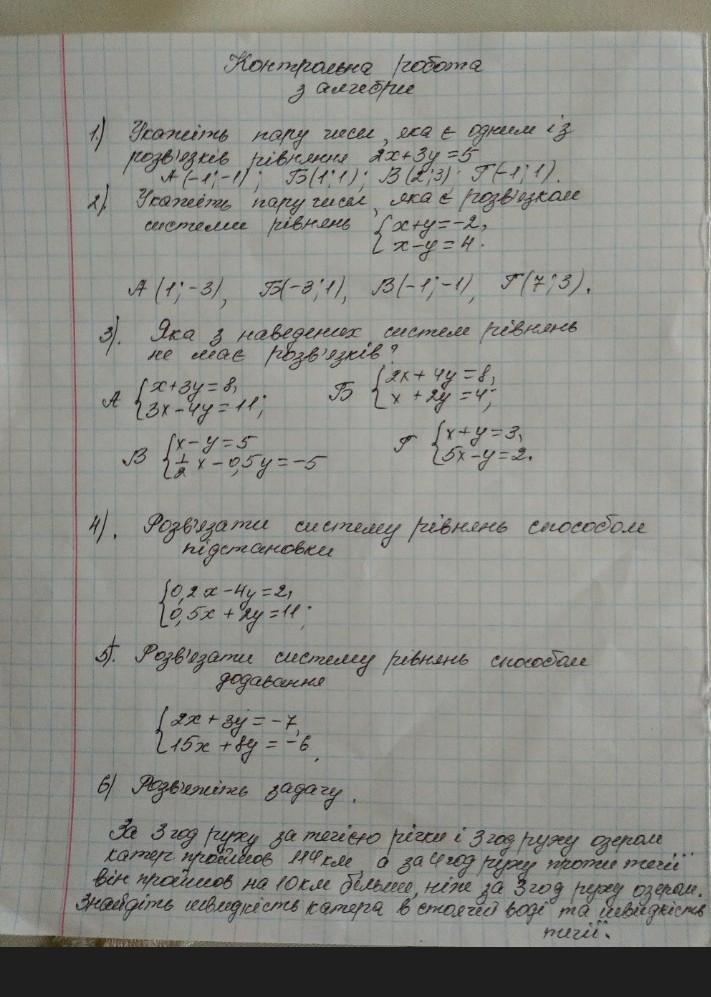 Контрольна робота
з алгебри
1.) Укажіть пару чисел, яка є одним із
розв'язків рівняння 2x+3y=5
А(-1;-1); Б(1;1); В(2;3); Г(-1;1).
2) Укажіть пару чисел, яка є розв'язком
системи рівнянь { x+y=-2,
x-y=4.
А(1;-3), Б(-3;1), В(-1;-1), Г(7;3).
3). Яка з наведених систем рівнянь
не має розв'язків?
А { x+3y=8, Б { 2x+4y=8,
3x-4y=11; x+2y=4;
В { x-y=5 Г { x+y=3,
1/2 x-0,5y=-5 5x-y=2.
4). Розв'язати систему рівнянь способом
підстановки
{ 0,2x-4y=2,
0,5x+2y=11;
5). Розв'язати систему рівнянь способом
додавання
{ 2x+3y=-7,
15x+8y=-6.
6) Розв'яжіть задачу.
За 3 год руху за течією річки і 3 год руху озером
катер пройшов 114 км, а за 4 год руху проти течії
він пройшов на 10 км більше, ніж за 3 год руху озером.
Знайдіть швидкість катера в стоячій воді та швидкість
течії.